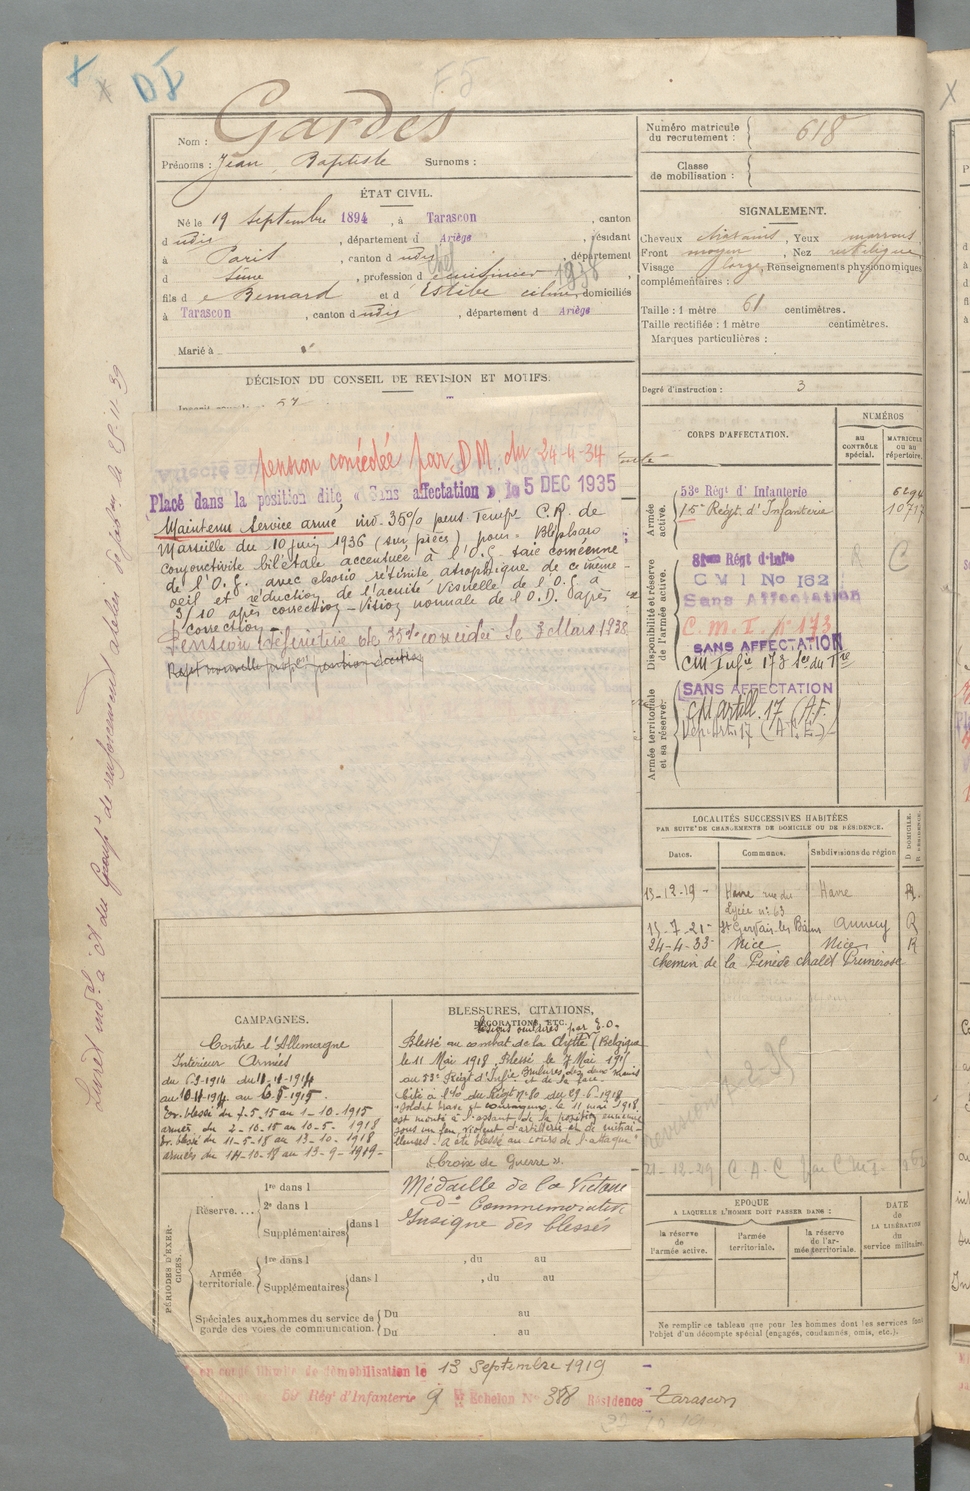 DF
F. 5
Nom : Gardes
Prénoms : Jean Baptiste Surnoms :
ÉTAT CIVIL.
Né le 19 septembre 1894, à Tarascon, canton
d udis, département d Ariège, résidant
à Paris, canton d udis, département
d Seine, profession d cuisinier
chef 1938
fils d e Bernard et d Estèbe celine, domiciliés
à Tarascon, canton d udis, département d Ariège
Marié à
DÉCISION DU CONSEIL DE REVISION ET MOTIFS.
57
pension concédée par D.M. du 24-4-34
Placé dans la position dite « Sans affectation » le 5 DEC 1935
Maintenu Service armé, ind. 35% pens. Temp. C.R. de
Marseille du 10 juin 1936 (sur pièces) pour : Blépharo
conjonctivite bilatérale accentuée à l'O.G. taie cornéenne
de l'O.G. avec chorio rétinite atrophique de ce même
oeil et réduction de l'acuité visuelle de l'O.G. à
3/10 après correction - Vision normale de l'O.D. après
correction -
Pension définitive de 35% concédée le 3 Mars 1938
Livret indel à du Groupt de renforcement
CAMPAGNES.
Contre l'Allemagne
Intérieur Armées
Br. blessé du 7-5-15 au 1-10-1915
armées du 2-10-15 au 10-5-1918
Br. blessé du 11-5-18 au 13-10-1918
armées du 14-10-18 au 13-9-1919-
BLESSURES, CITATIONS,
DÉCORATIONS, ETC.
Blessé au combat de la Clytte (Belgique
le 11 Mai 1918. Blessé le 7 Mai 1915
au 53e Régt d'Infie Brulures des deux mains
et de la face.
Cité à l'ao du Régt no 80 du 29-6-1918
"Soldat brave et courageux, le 11 mai 1918
est monté à l'assaut de la position ennemie
sous un feu violent d'artillerie et de mitrail
leuses. A été blessé au cours de l'attaque"
"Croix de Guerre".
Médaille de la Victoire
do Commemorative
Insigne des blessés
PÉRIODES D'EXERCICES.
Réserve....
1re dans l
2e dans l
Supplémentaires dans l
Armée territoriale.
1re dans l , du au
Supplémentaires dans l , du au
Spéciales aux hommes du service de
garde des voies de communication.
Du au
Du au
de démobilisation le 13 Septembre 1919
Rég't d'Infanterie 9 Echelon No 388 Résidence Tarascon
Numéro matricule
du recrutement : 618
Classe
de mobilisation :
SIGNALEMENT.
Cheveux chatains, Yeux marrons
Front moyen, Nez rectiligne
Visage large, Renseignements physionomiques
complémentaires :
Taille : 1 mètre 61 centimètres.
Taille rectifiée : 1 mètre centimètres.
Marques particulières :
Degré d'instruction : 3
CORPS D'AFFECTATION.
NUMÉROS
AU CONTRÔLE spécial.
MATRICULE ou au répertoire.
Armée active.
53e Régt d'Infanterie
15e Régt d'Infanterie
Disponibilité et réserve de l'armée active.
81eme Régt d'Infie
R C
CMI No 162
Sans Affectation
C. M. I. No 173
SANS AFFECTATION
CM Infie 173
Armée territoriale et sa réserve.
SANS AFFECTATION
CM Artill. 17 (A.F.)
LOCALITÉS SUCCESSIVES HABITÉES
PAR SUITE DE CHANGEMENTS DE DOMICILE OU DE RÉSIDENCE.
Dates. Communes. Subdivisions de région D DOMICILE. R RÉSIDENCE.
13-12-19 - Havre rue du Havre R.
Lycée no 63
15-7-21- St Gervais-les-Bains Annecy R
24-4-33- Nice Nice R
chemin de la Pinède chalet Primerose
revision
21-12-29 C A C par CMI. 162
EPOQUE
A LAQUELLE L'HOMME DOIT PASSER DANS :
la réserve de l'armée active.
l'armée territoriale.
la réserve de l'armée territoriale.
DATE de LA LIBÉRATION du service militaire.
Ne remplir ce tableau que pour les hommes dont les services font
l'objet d'un décompte spécial (engagés, condamnés, omis, etc.).